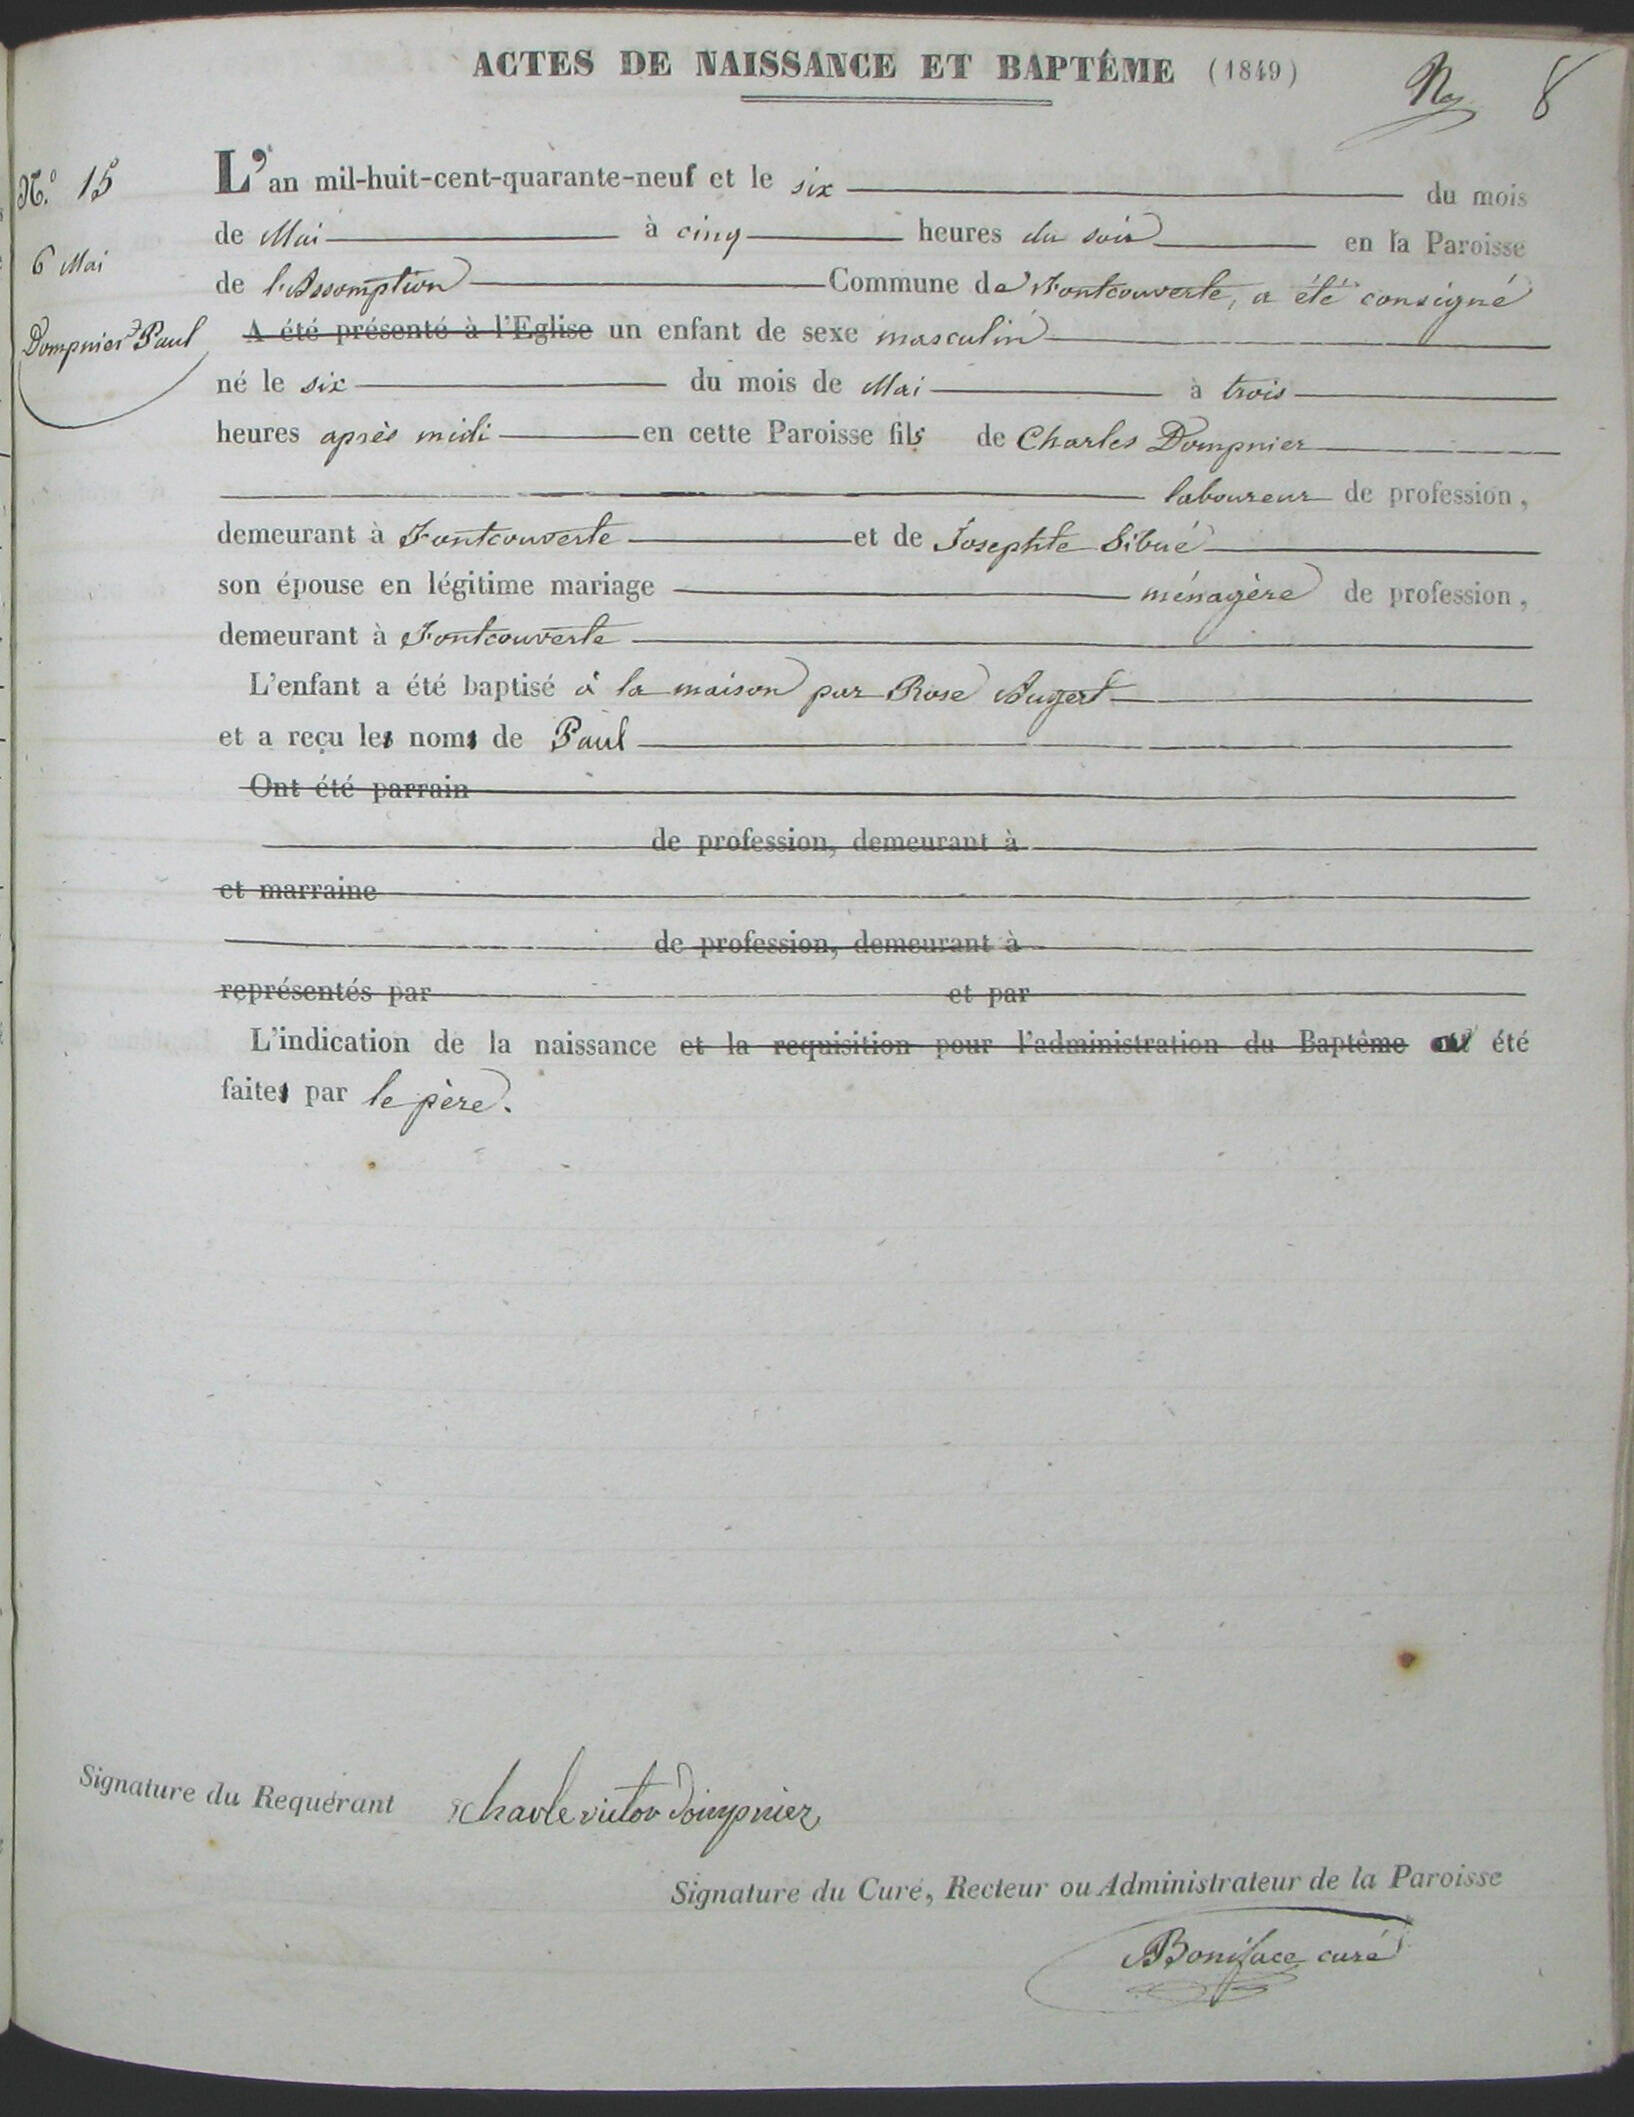 ACTES DE NAISSANCE ET BAPTÊME (1849)
8
N.º 15
6 Mai
Dompnier Paul
L'an mil-huit-cent-quarante-neuf et le six du mois
de Mai à cinq heures du soir en la Paroisse
de l'Assomption Commune de Fontcouverte, a été consigné
A été présenté à l'Eglise un enfant de sexe masculin
né le six du mois de Mai à trois
heures après midi en cette Paroisse fils de Charles Dompnier
laboureur de profession,
demeurant à Fontcouverte et de Josephte Sibué
son épouse en légitime mariage ménagère de profession,
demeurant à Fontcouverte
L'enfant a été baptisé à la maison par Rose Augert
et a reçu les noms de Paul
Ont été parrain
de profession, demeurant à
et marraine
de profession, demeurant à
représentés par et par
L'indication de la naissance et la requisition pour l'administration du Baptême a été
faites par le père.
Signature du Requérant charle victor dompnier
Signature du Curé, Recteur ou Administrateur de la Paroisse
Boniface curé